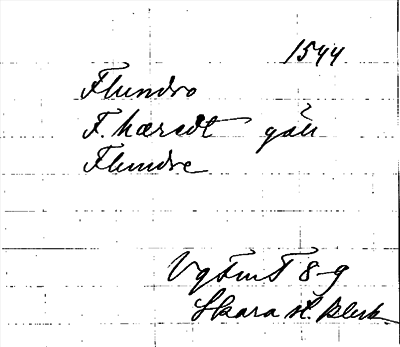 1544
Flundro
F. hæredt gäll
Flundre
VgFmT 8-9
Skara st. Blek.